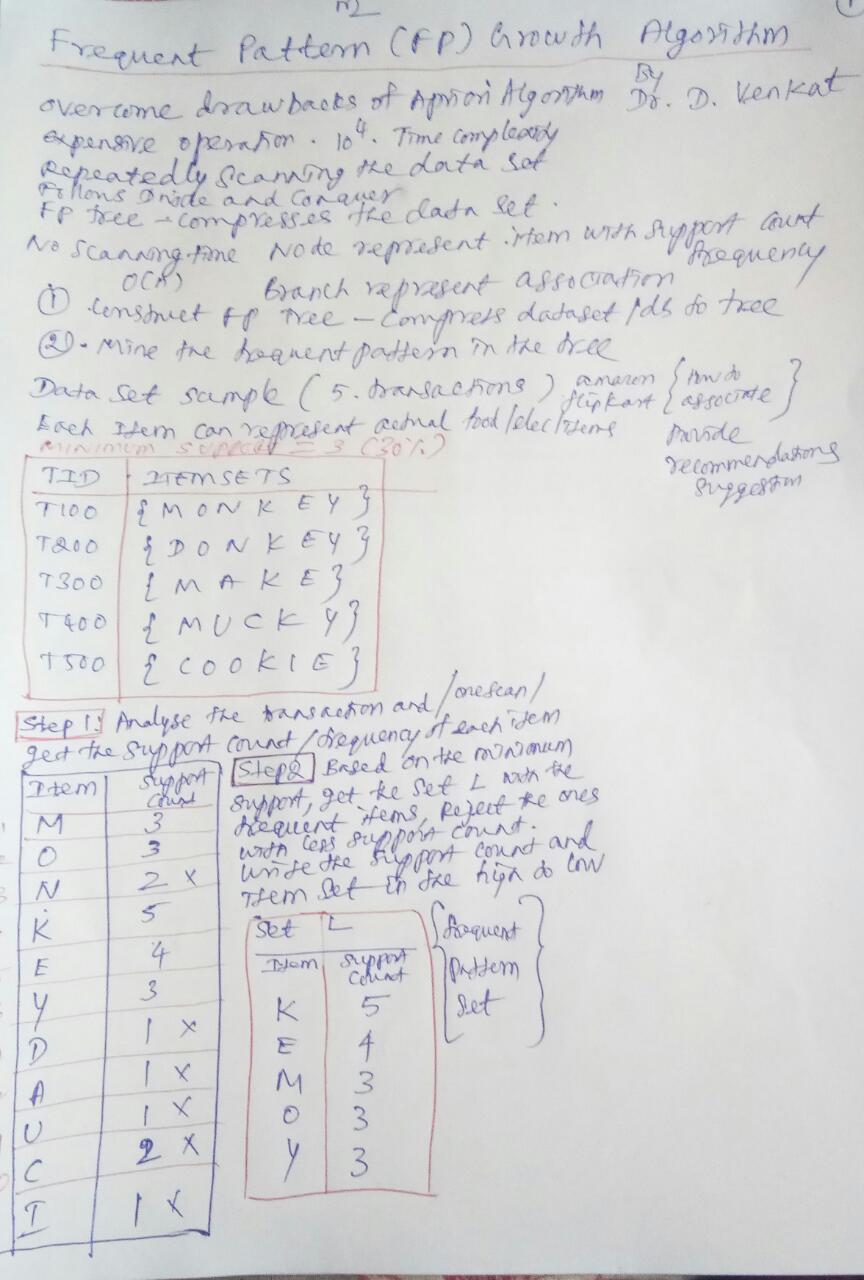 Frequent Pattern (FP) Growth Algorithm
By
overcome drawbacks of Apriori Algorithm Dr. D. Venkat
expensive operation. 10^4. Time complexity
Repeatedly Scanning the data set
Follows Divide and Conquer
FP tree - compresses the data set.
No scanning time Node represent item with support count
frequency
O(n) Branch represent association
① Construct FP Tree - Compress dataset / db to tree
② - Mine the frequent pattern in the tree
Data Set sample (5. transactions) amazon { how to }
flipkart { associate }
Each Item can represent actual food/elec/items Provide
recommendations
suggestion
MINIMUM SUPPORT = 3 (30%)
TID ITEMSETS
T100 { M O N K E Y }
T200 { D O N K E Y }
T300 { M A K E }
T400 { M U C K Y }
T500 { C O O K I E }
Step 1: Analyse the transaction and /onescan/
get the support count/frequency of each item
Item Support
Count
M 3
O 3
N 2 x
K 5
E 4
Y 3
D 1 x
A 1 x
U 1 x
C 2 x
I 1 x
Step 2 Based on the minimum
support, get the set L with the
frequent items, Reject the ones
with less support count.
write the support count and
Item Set in the high to low
Set L
Item Support
Count
K 5
E 4
M 3
O 3
Y 3
{ frequent
pattern
Set }